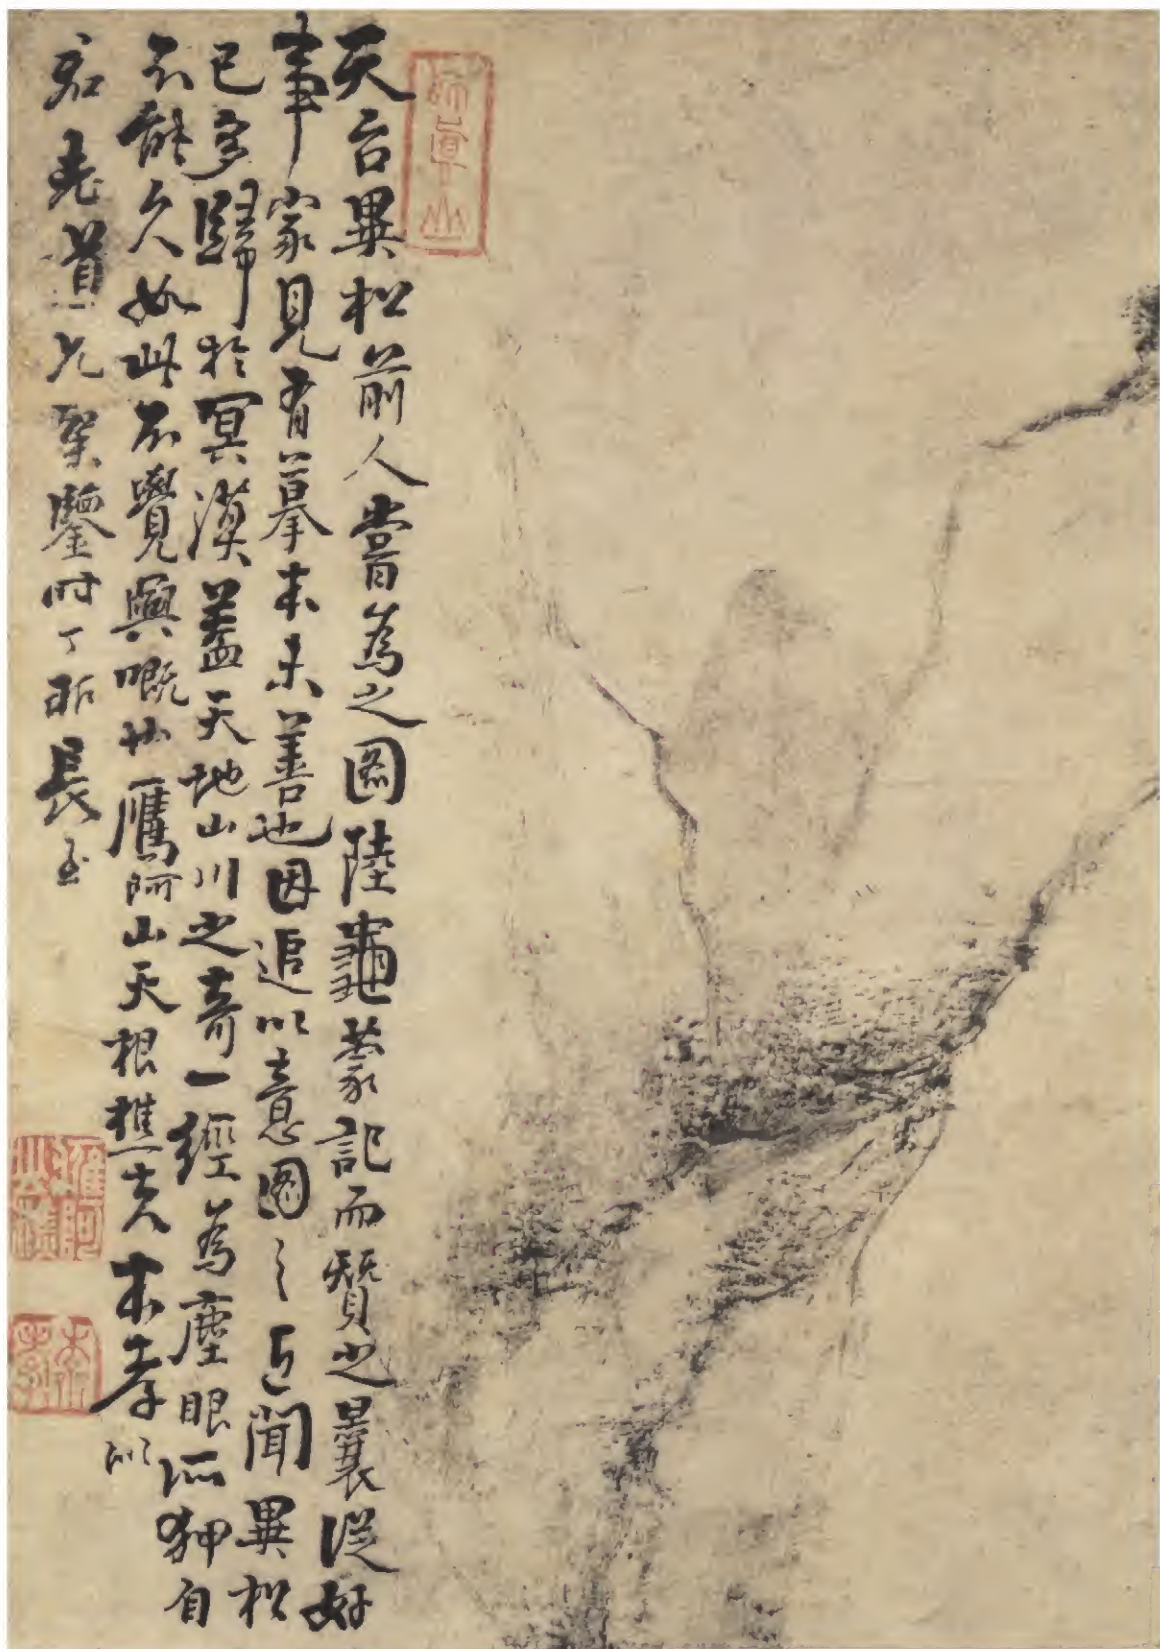 天台異松前人嘗為之圖陸龜蒙記而贊之曩從好
事家見有摹本未善也因追以意圖之近聞異松
已多歸於冥漠蓋天地山川之奇一經為塵眼所狎自
不能久如此不覺興嘅也鷹阿山天根樵夫本孝以
老道兄鑒時丁卯長至